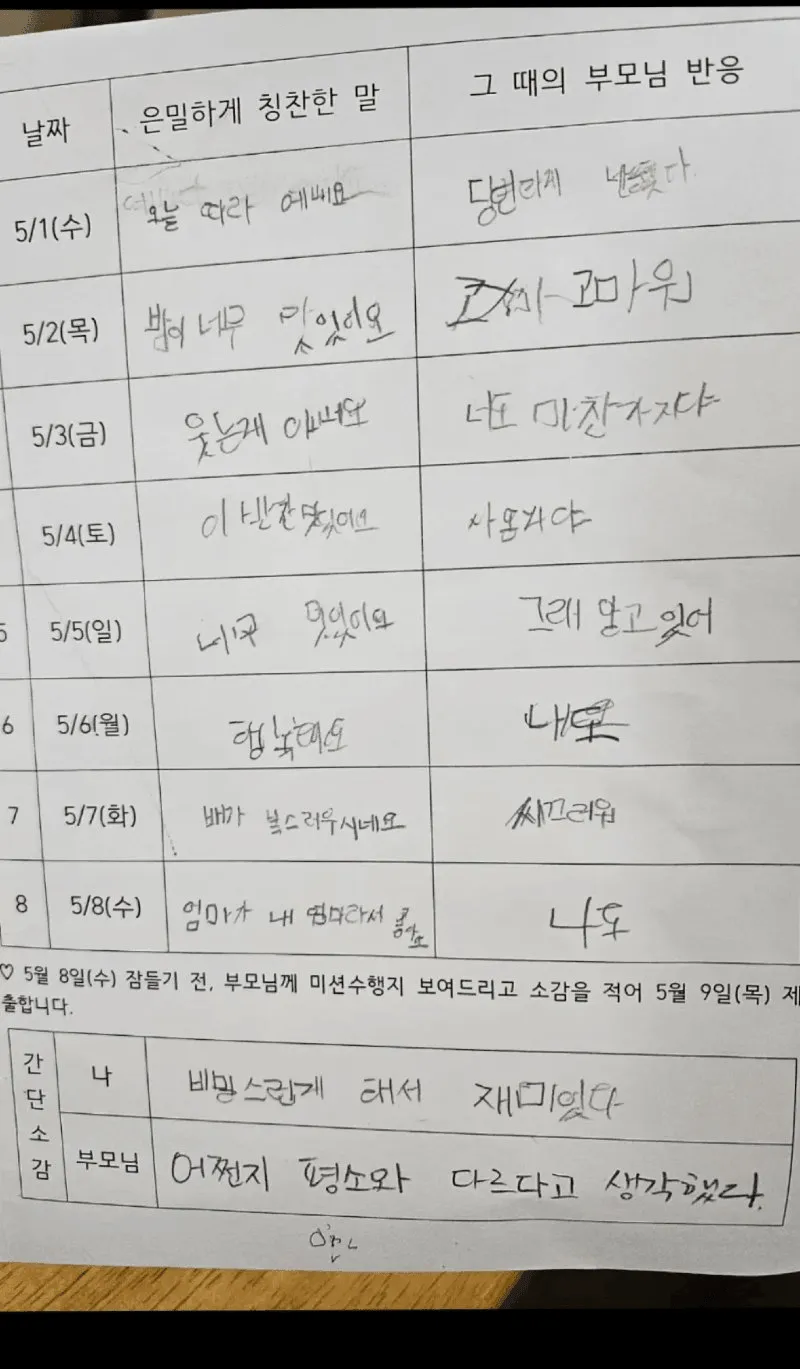 날짜 은밀하게 칭찬한 말 그 때의 부모님 반응
5/1(수) 오늘 따라 예뻐요
5/2(목) 밥이 너무 맛있어요 고마워
5/3(금) 웃는게 너도 마찬가지야
5/4(토) 이 반찬 맛있어요
5/5(일) 맛있어요 그래 알고 있어
6 5/6(월) 행복해요
7 5/7(화) 배가 복스러우시네요 씨끄러워
8 5/8(수) 엄마가 내 엄마라서 나도
♡ 5월 8일(수) 잠들기 전, 부모님께 미션수행지 보여드리고 소감을 적어 5월 9일(목) 제
출합니다.
간단소감
나 재미있다
부모님 어쩐지 평소와 다르다고 생각했다.